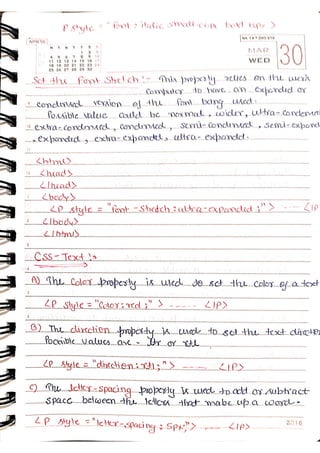 P style = "font : italic small-caps bold 12px >
APRIL'16
WK 14 • DAY 090
MAR
WED
30
Set the Font Stretch :- This property relies on the user's
Computer to have an expanded or
condensed version of the font being used.
Possible value could be normal, wider, ultra-condensed
extra-condensed, condensed, semi-condensed, semi-expand
, expanded, extra-expanded, ultra-expanded.
<html>
<head>
</head>
<body>
<P style = "font-Stretch : ultra-expanded ;"> ---- </P
</body>
</html>
CSS-Text :-
A) The Color property is used to set the color of a text
<P style = "Color : red ;" > ---- </P>
(B) The direction property is used to set the text direction
Possible values are - ltr or rtl
<P style = "direction : rtl ; "> ---- </P>
C) The letter-spacing property is used to add or subtract
space between the letters that make up a word.
<P style = "letter-spacing : 5px;"> ---- </P>
2016